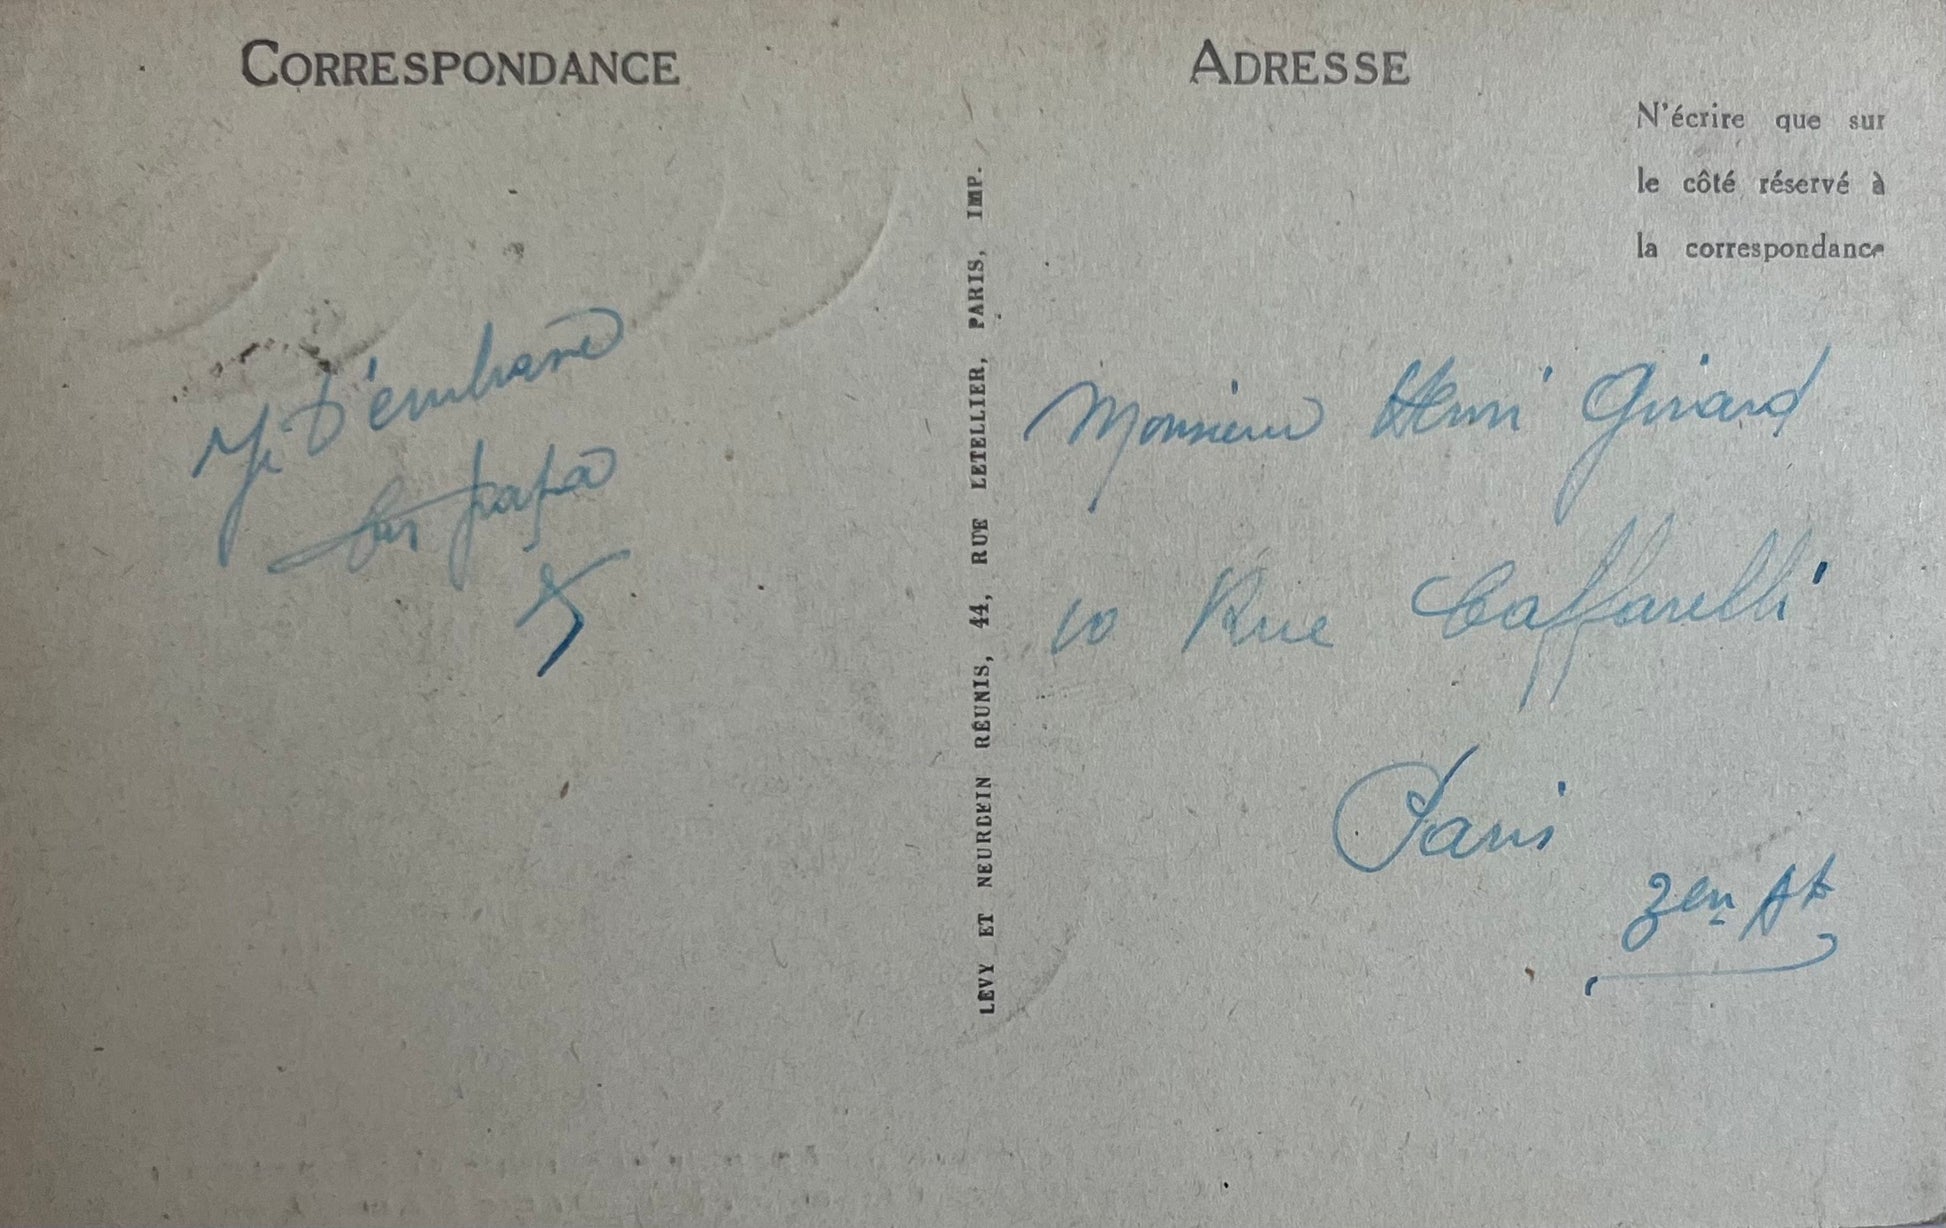 CORRESPONDANCE
Je t'embrasse
ton papa
LÉVY ET NEURDEIN RÉUNIS, 44, RUE LETELLIER, PARIS, IMP.
ADRESSE
N'écrire que sur
le côté réservé à
la correspondance
Monsieur Henri Girard
10 Rue Caffarelli
Paris
3em Ar